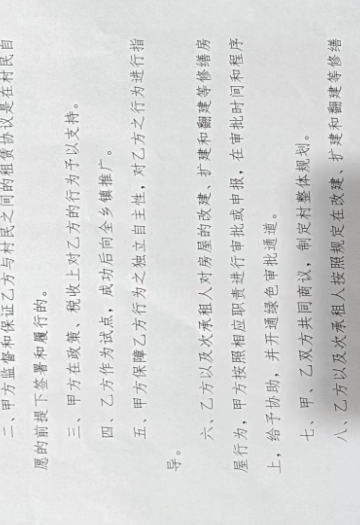 二、甲方监督和保证乙方与村民之间的租赁协议是在村民自
愿的前提下签署和履行的。
三、甲方在政策、税收上对乙方的行为予以支持。
四、乙方作为试点，成功后向全乡镇推广。
五、甲方保障乙方行为之独立自主性，对乙方之行为进行指
导。
六、乙方以及次承租人对房屋的改建、扩建和翻建等修缮房
屋行为，甲方按照相应职责进行审批或申报，在审批时间和程序
上，给予协助，并开通绿色审批通道。
七、甲、乙双方共同商议，制定村整体规划。
八、乙方以及次承租人按照规定在改建、扩建和翻建等修缮